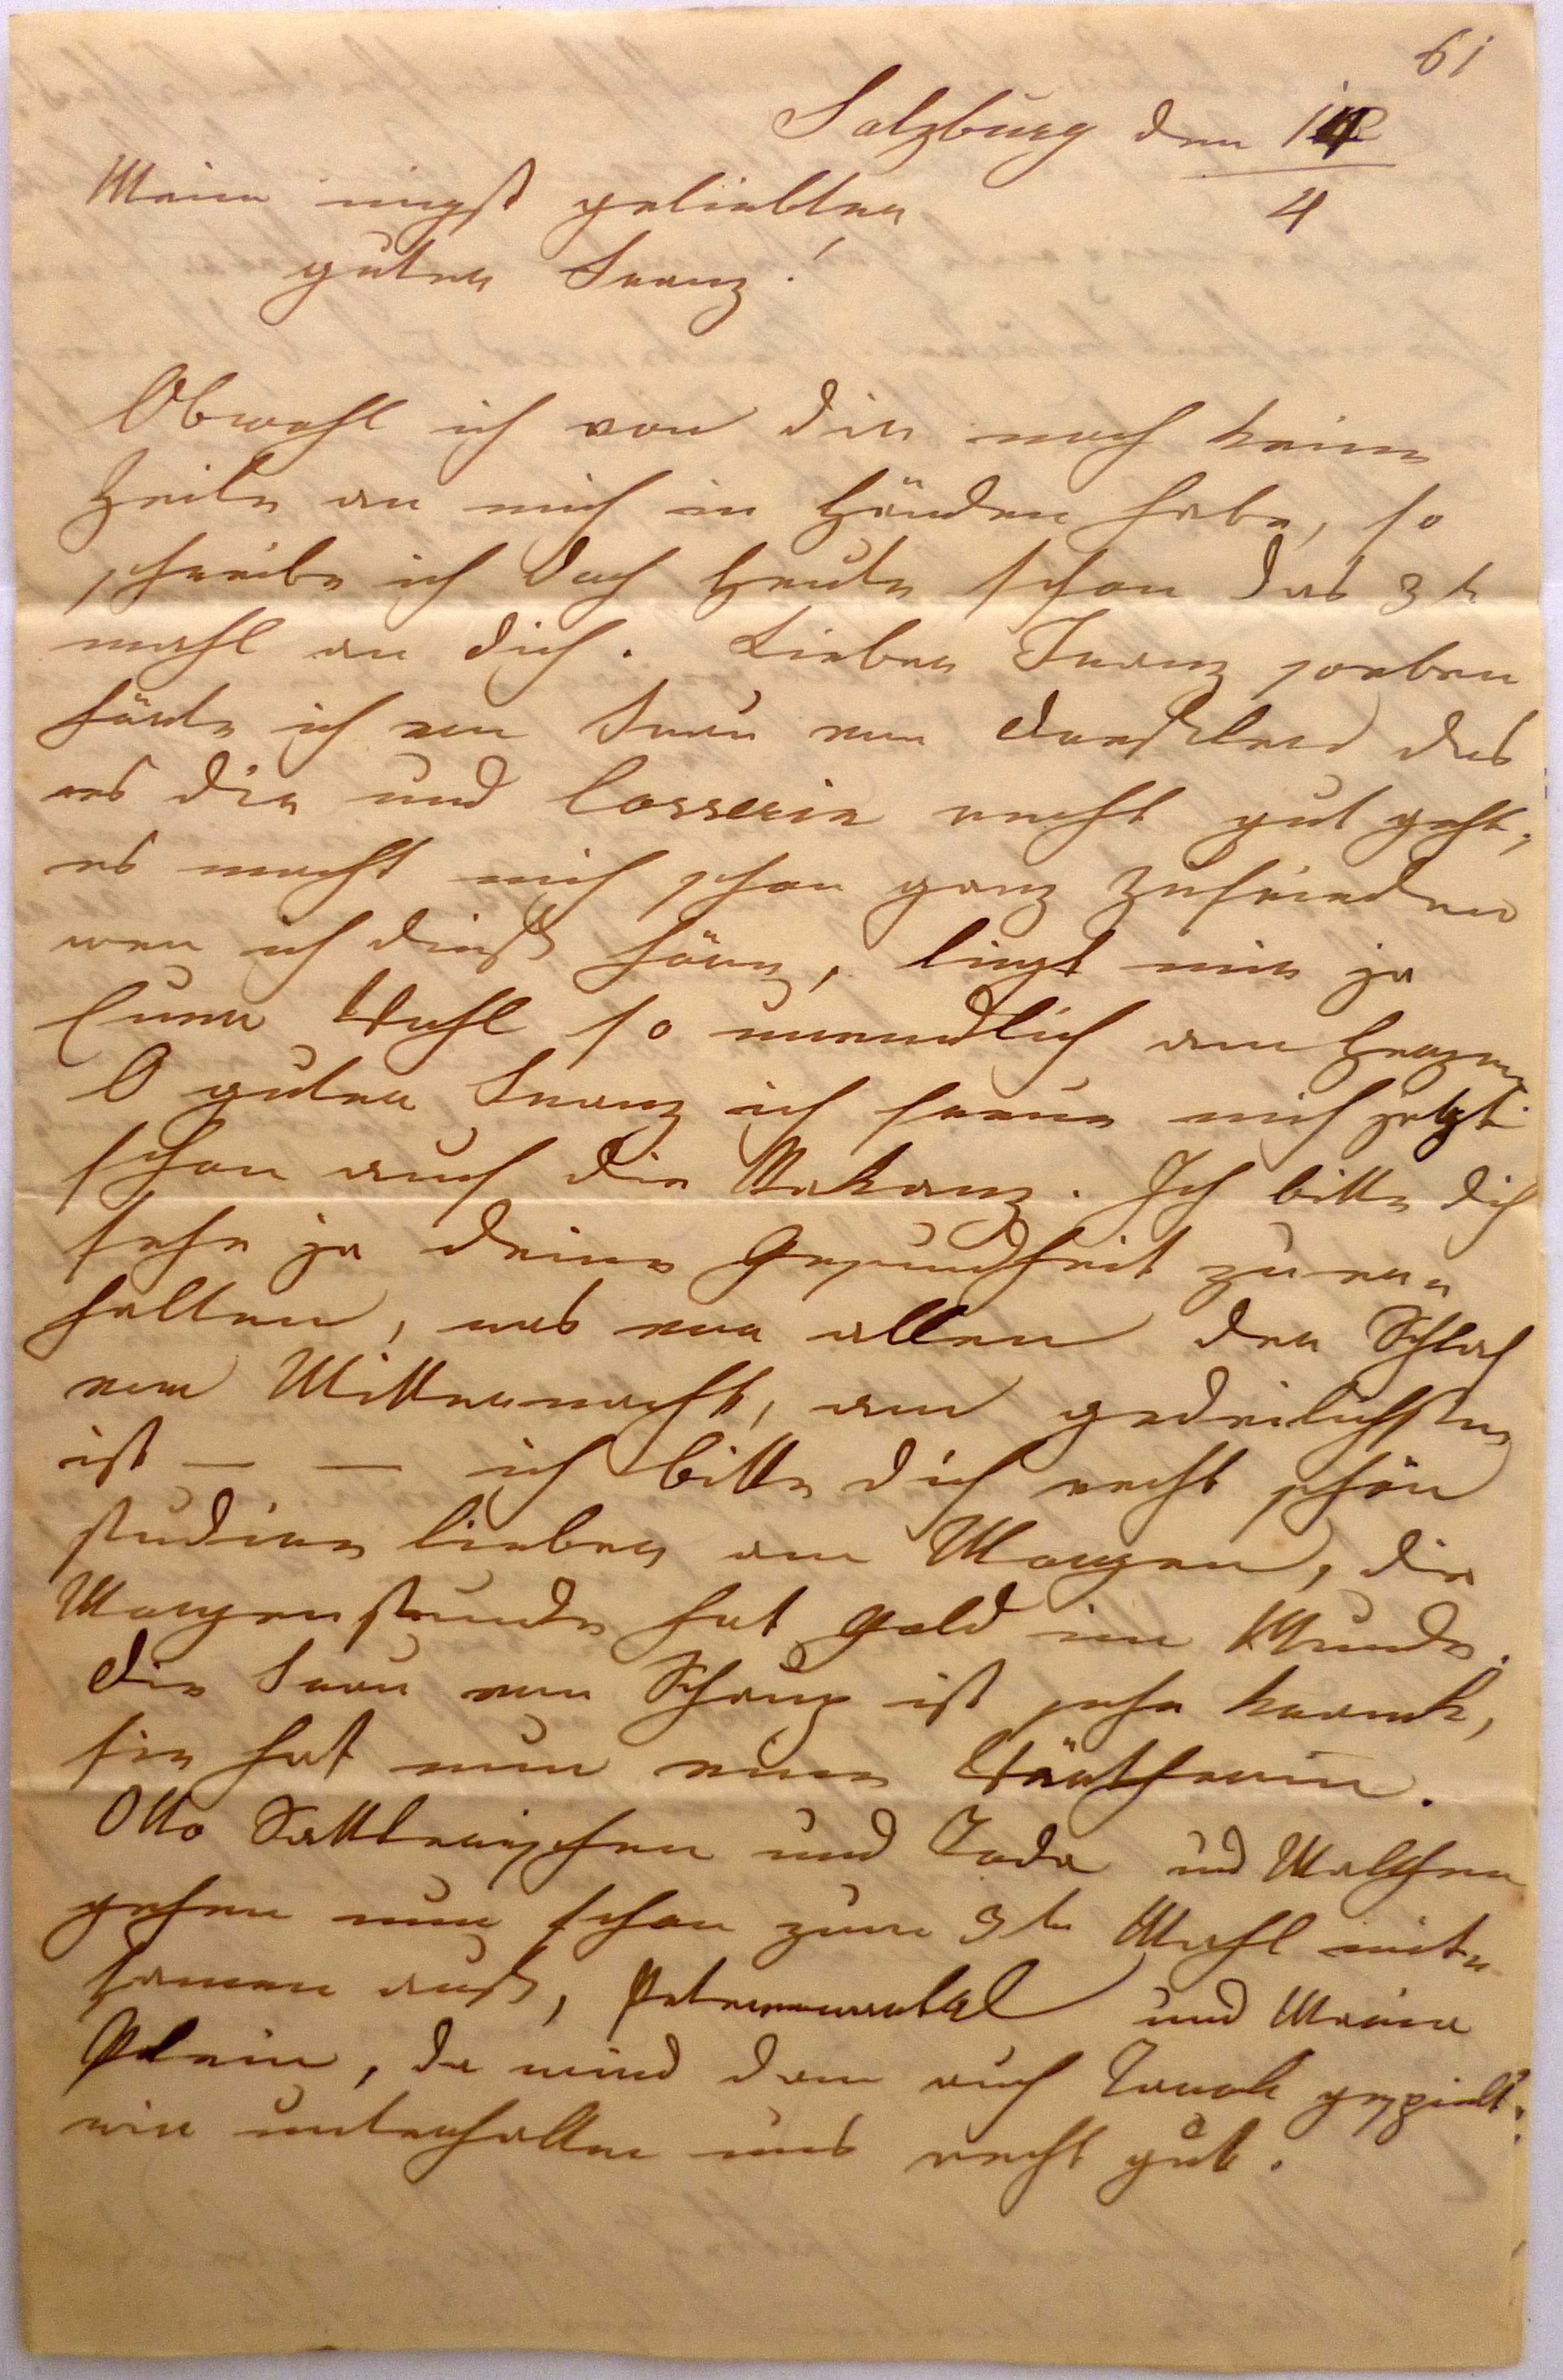 61
Salzburg den 14
4
Mein innigst geliebter
guter Franz!
Obwohl ich von dir noch keine
Zeile an mich in Händen habe, so
schreibe ich doch heute schon das 3te
mahl an dich. Lieber Franz soeben
hörte ich von Frau von das
es dir und recht gut geht,
es macht mich schon ganz zufrieden
wen ich dieß höre, liegt mir ja
Euer Wohl so unendlich am Herzen
O guter Franz ich freue mich jetzt
schon auf die Vakanz. Ich bitte dich
sehe ja deine Gesundheit zu er„
halten, was vor allen der Schlaf
vor Mitternacht, am gedeilichsten
ist — — ich bitte dich recht schön
studire lieber am Morgen, die
Morgenstunde hat Gold im Munde.
die Frau von ist sehr krank,
sie hat nun eine Wärtherin.
Otto und und
gehen nun schon zum 3te Mahl mit„
samen auß, und Maria
Plain, da wird dan auch Tarok gespielt.
wir unterhalten uns recht gut.